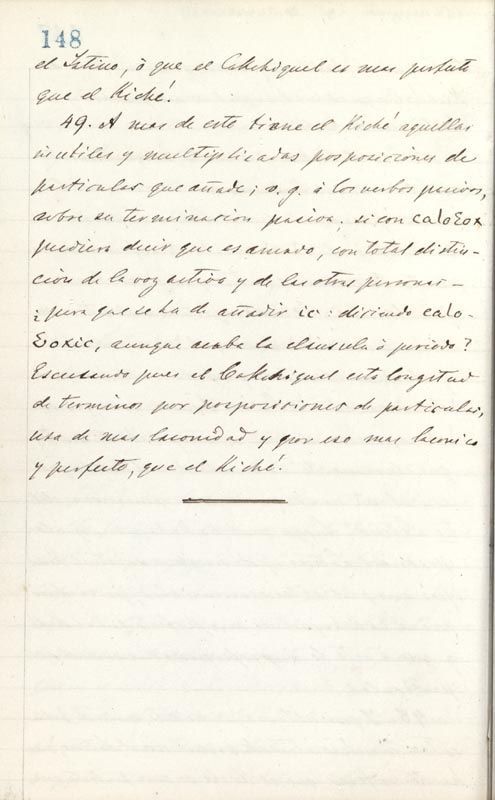 148
el Latino, ò que el Cakchiquel es mas perfecto
que el Kiché.
49. A mas de esto tiene el Kiché aquellas
inutiles y multiplicadas posposiciones de
particulas que añade; v. g. à los verbos pasivos,
sobre su terminacion pasiva; si con caloƐox
pudiera decir que es amado, con total distin-
cion de la voz activa y de las otras personas –
¿para que se ha de añadir ic: diciendo calo-
Ɛoxic, aunque acaba la clausula ò periodo?
Escusando pues el Cakchiquel esta longitud
de terminos por posposiciones de particulas,
usa de mas laconidad y por eso mas laconico
y perfecto, que el Kiché.